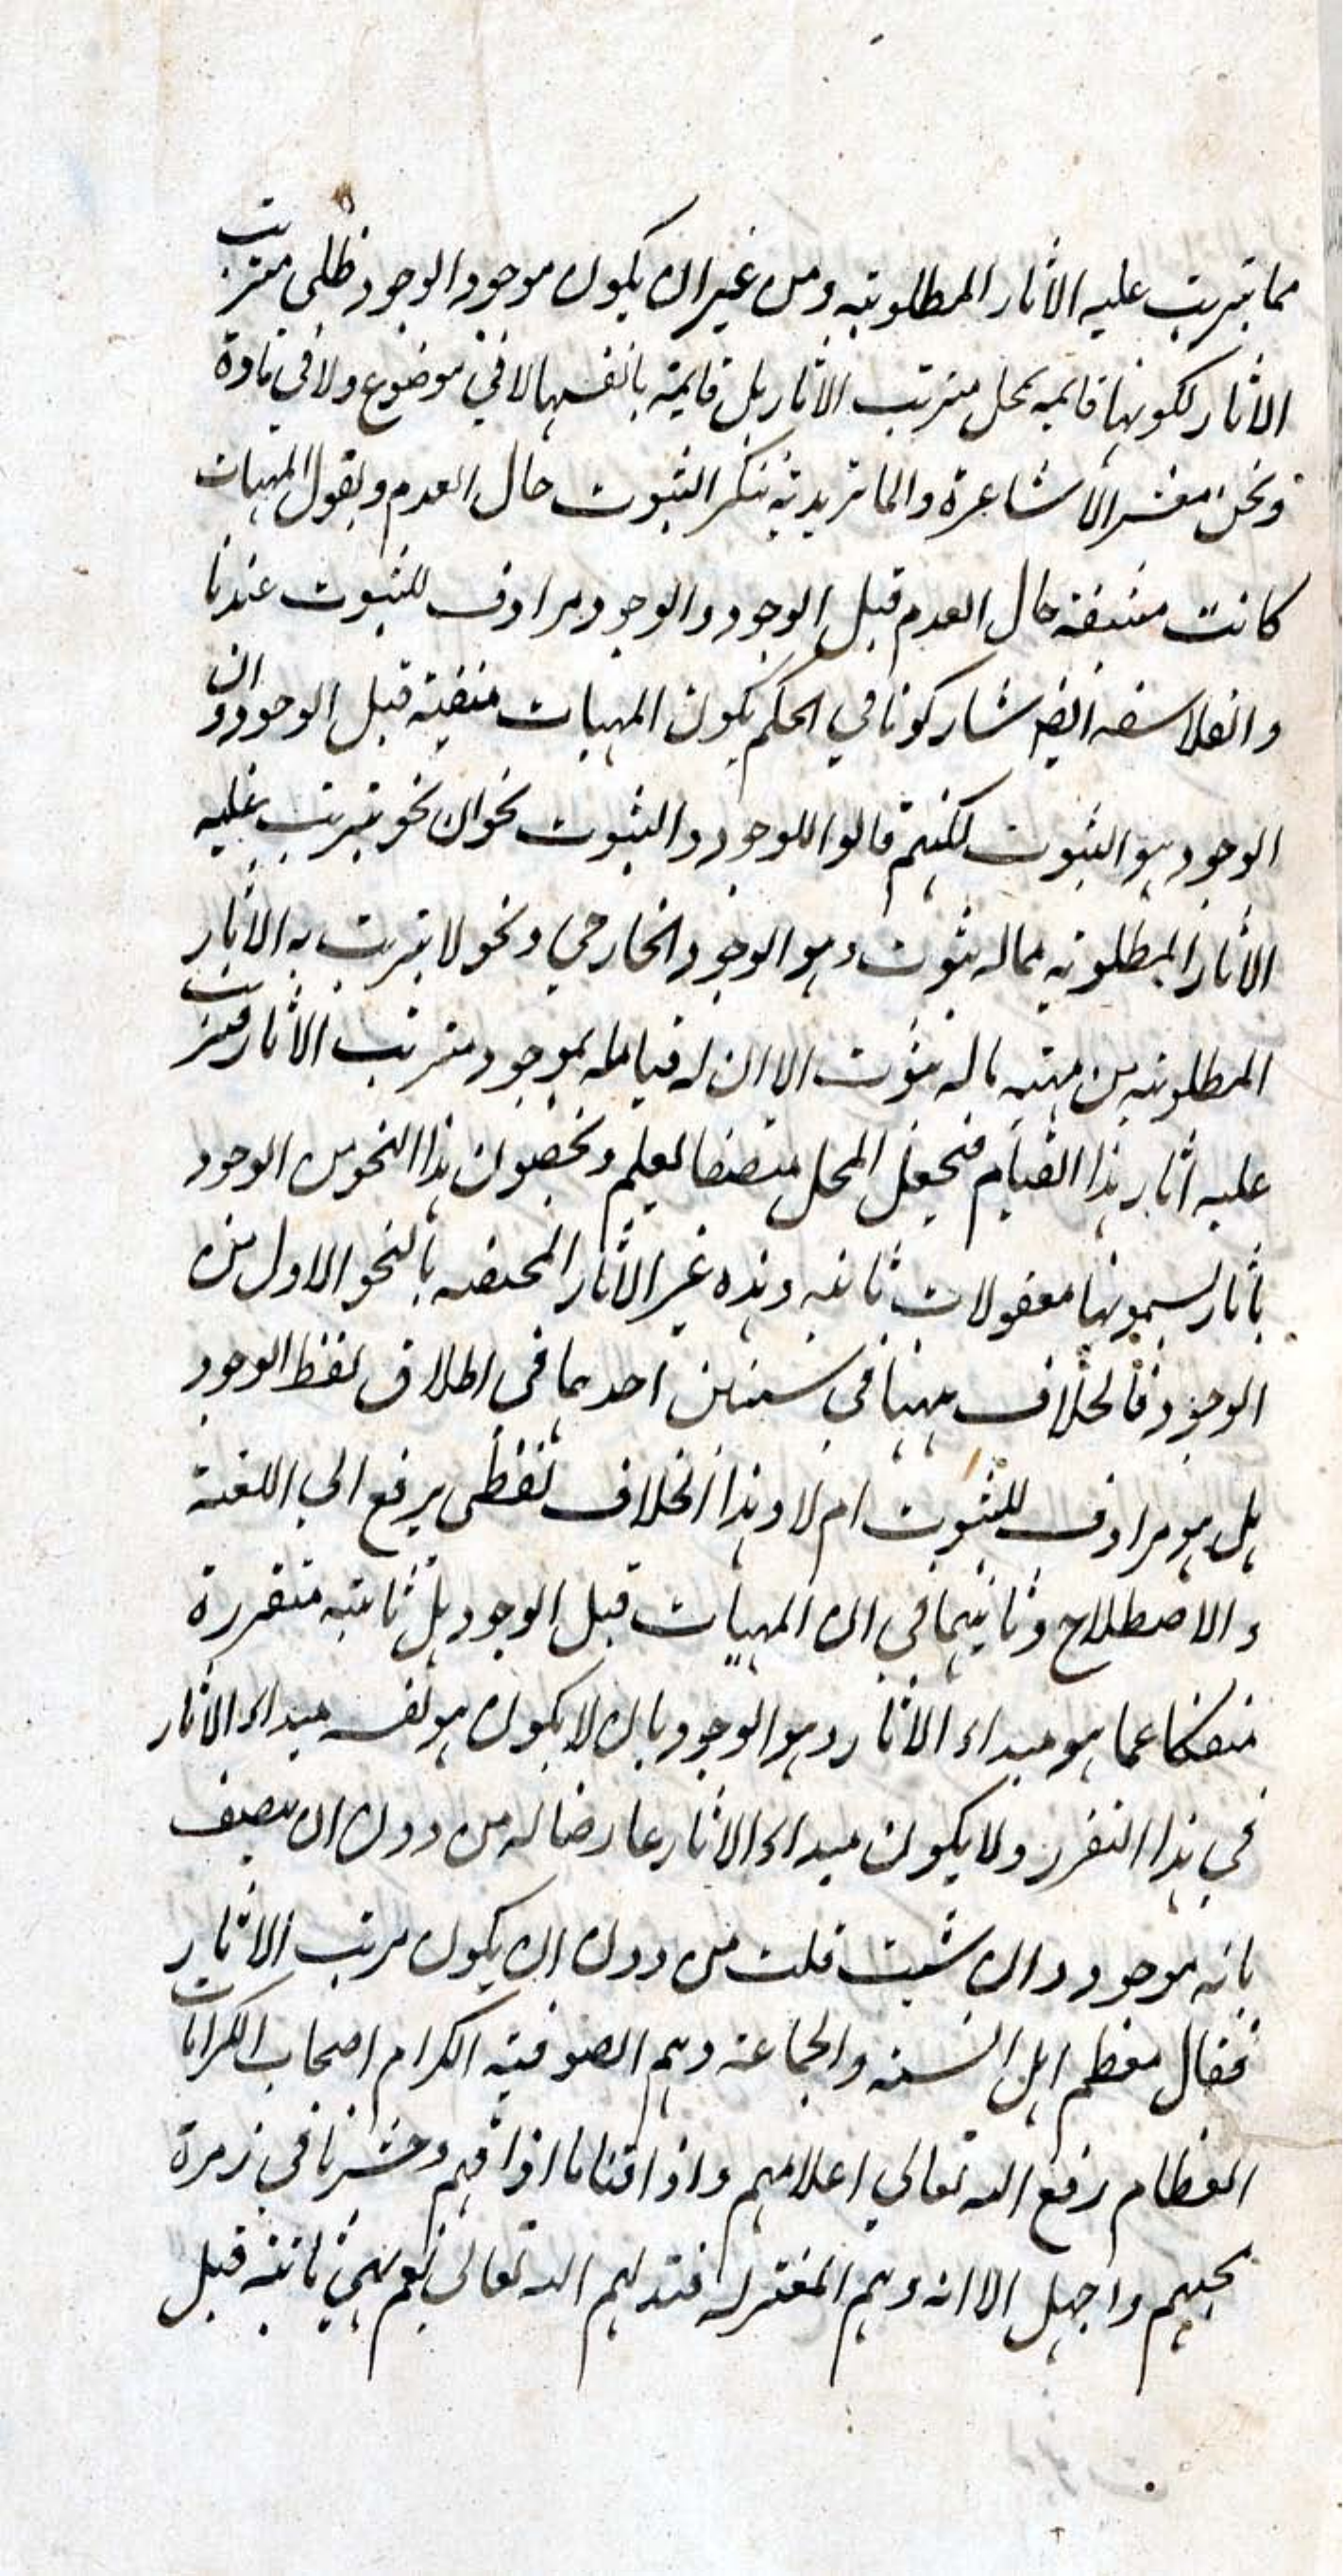 مما يترتب عليه الاثار المطلوبة ومن غير ان يكون موجود الوجود ظلي مترتب
الاثار لكونها قايمة بمحل مترتب الاثار بل قايمة بانفسها لا في موضوع ولا في مادة
ونحن معشر الاشاعرة والماتريدية ننكر الثبوت حال العدم ونقول المهيات
كانت منتفية حال العدم قبل الوجود والوجود مرادف للثبوت عندنا
والفلاسفة ايضا شاركونا في الحكم بكون المهيات منفية قبل الوجود وان
الوجود هو الثبوت لكنهم قالوا للوجود والثبوت نحوان نحو يترتب عليه
الاثار المطلوبة مما له ثبوت وهو الوجود الخارجي ونحو لا يترتب به الاثار
المطلوبة من مهية ما له ثبوت الا ان له قياما بموجود مترتب الاثار فيترتب
عليه اثار هذا القيام فيجعل المحل متصفا لعلم ونخصون هذا النحو من الوجود
باثار يسمونها معقولات ثانية وهذه غير الاثار المختصة بالنحو الاول من
الوجود فالخلاف ههنا في سنين احدهما في اطلاق لفظ الوجود
هل هو مرادف للثبوت ام لا وهذا الخلاف لفظي يرفع الى اللغة
والاصطلاح وثانيهما في ان المهيات قبل الوجود هل ثابتة متقررة
منفكا عما هو مبداء الاثار وهو الوجود بان لا يكون هو نفسه مبداء الاثار
في هذا التقرر ولا يكون مبداء الاثار عارضا له من دون ان يصف
بانه موجود وان شيت قلت من دون ان يكون مرتب الاثار
فقال معظم اهل السنة والجماعة وهم الصوفية الكرام اصحاب الكرامات
العظام رفع الله تعالي اعلامهم واذاقنا ما اذاقهم وحشرنا في زمرة
محبهم واجهل الا انه وهم المعتزلة خذلهم الله تعالى نعم هي ثابتة قبل